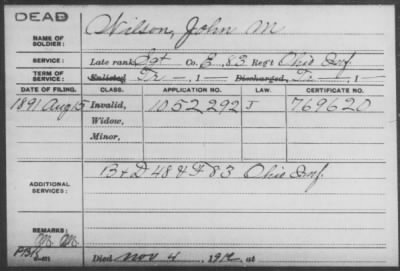 DEAD
NAME OF SOLDIER: Wilson, John M
SERVICE: Late rank Sgt Co. E, 83 Reg't Ohio Inf.
TERM OF SERVICE: Enlisted Tr 1 Discharged, Tr 1
DATE OF FILING. CLASS. APPLICATION NO. LAW. CERTIFICATE NO.
1891 Aug 5 Invalid, 1052292 J 769620
Widow,
Minor,
ADDITIONAL SERVICES: B + D 48 & F 83 Ohio Inf.
REMARKS:
Died Nov 4, 191 at